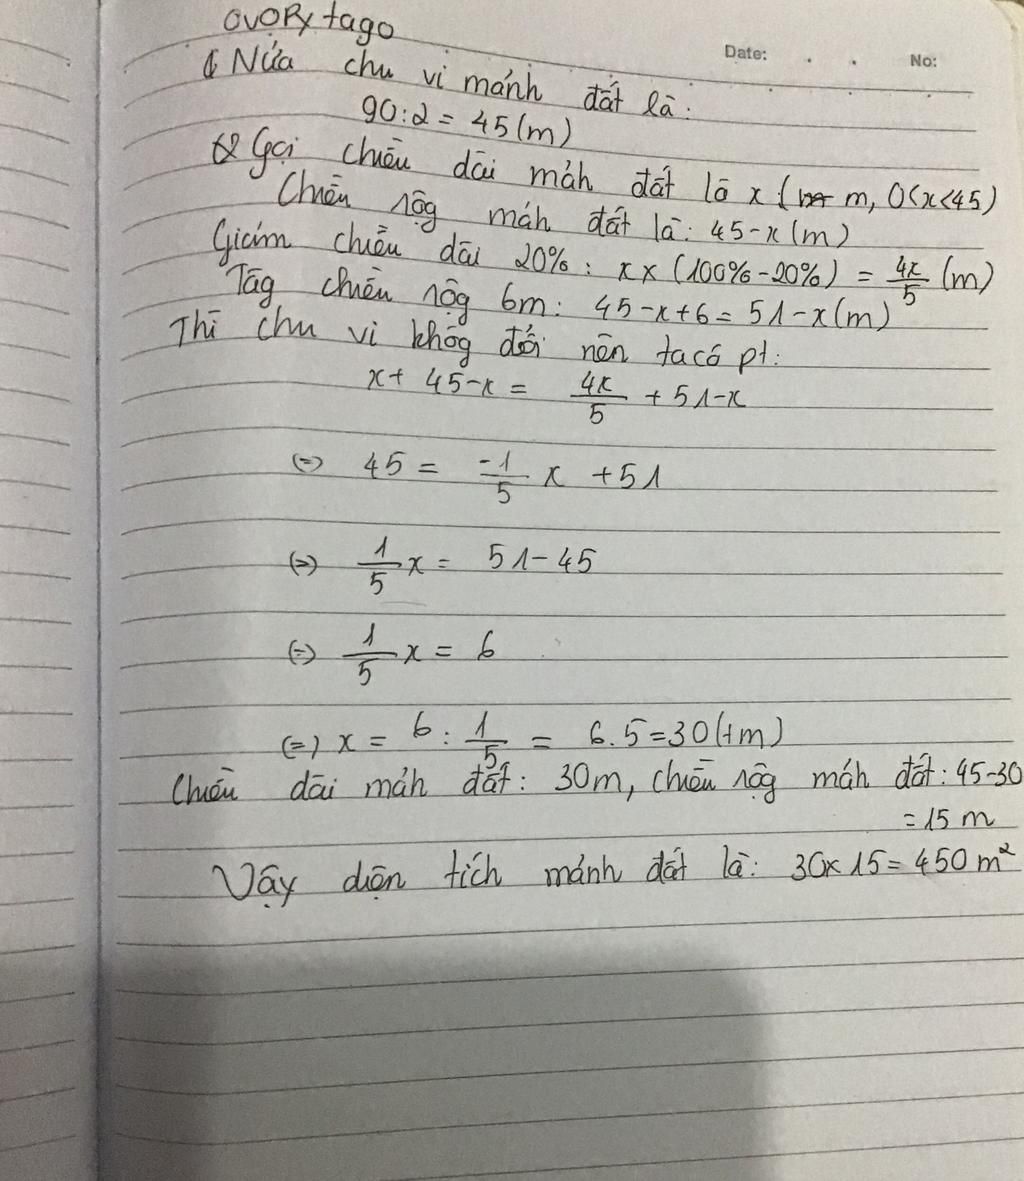 ovoRy tago
Date: . . No:
Nửa chu vi mảnh đất là:
90:2 = 45 (m)
Gọi chiều dài mảh đất là x ( m, 0<x<45)
Chiều rộg mảh đất là: 45-x (m)
Giảm chiều dài 20% : x x (100%-20%) = 4x/5 (m)
Tăg chiều rộg 6m: 45-x+6 = 51-x (m)
Thì chu vi khôg đổi nên ta có pt:
x + 45-x = 4x/5 + 51-x
(=) 45 = -1/5 x + 51
(=) 1/5 x = 51-45
(=) 1/5 x = 6
(=) x = 6 : 1/5 = 6.5=30 (tm)
Chiều dài mảh đất: 30m, chiều rộg mảh đất: 45-30
= 15 m
Vậy diện tích mảnh đất là: 30x15 = 450 m²